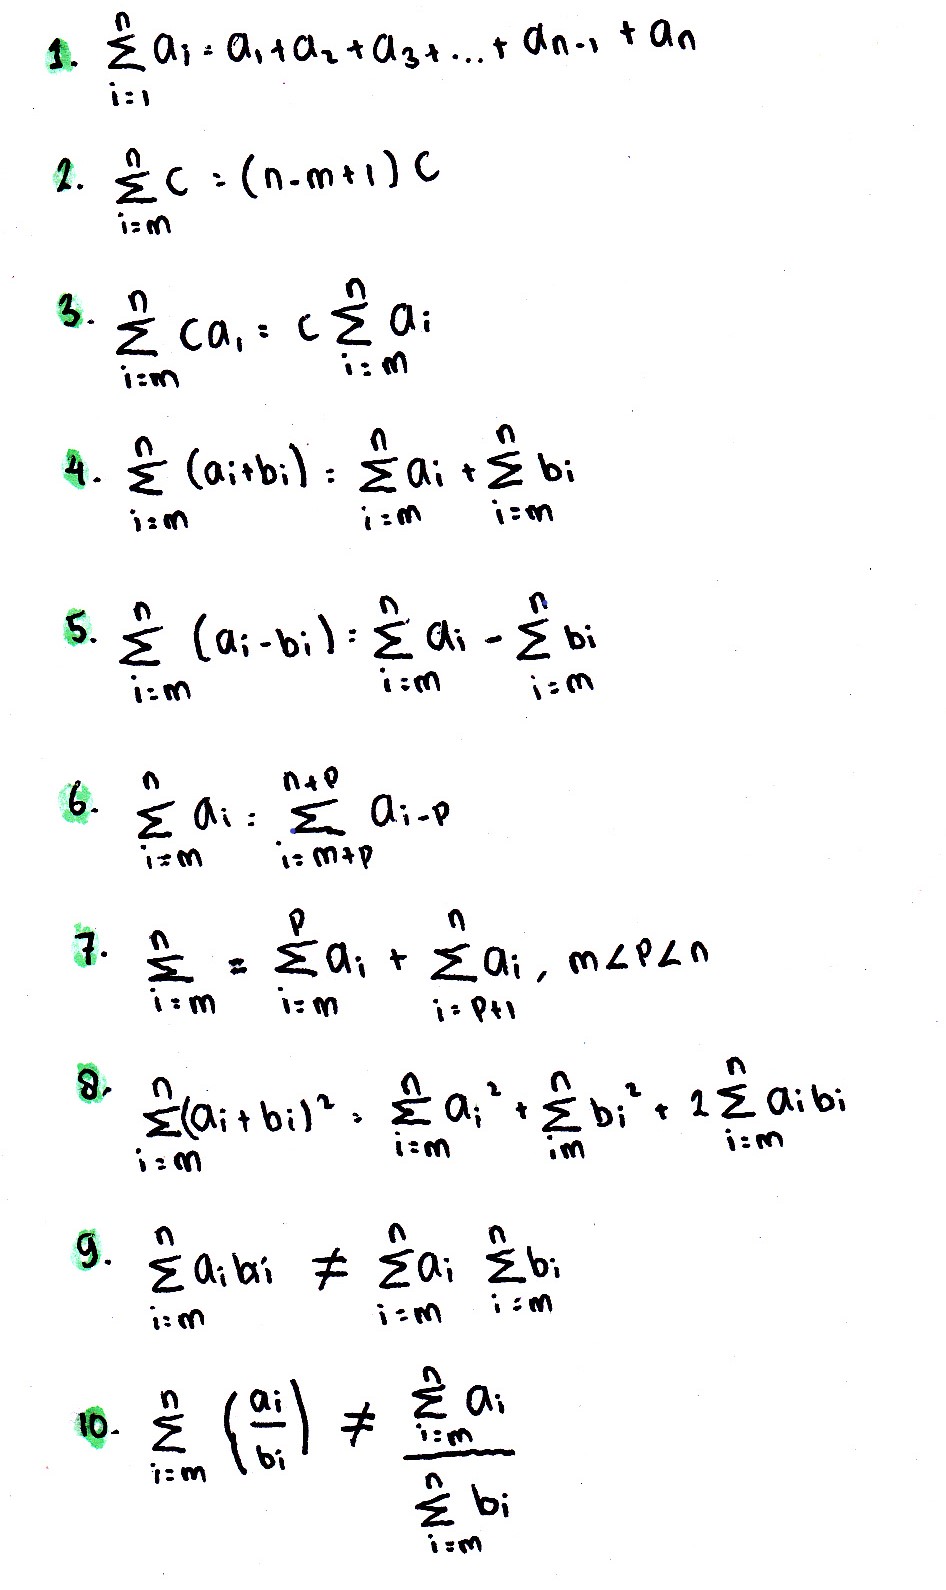 1. \sum_{i=1}^{n} a_i = a_1 + a_2 + a_3 + ... + a_{n-1} + a_n
2. \sum_{i=m}^{n} c = (n-m+1) c
3. \sum_{i=m}^{n} c a_1 = c \sum_{i=m}^{n} a_i
4. \sum_{i=m}^{n} (a_i+b_i) = \sum_{i=m}^{n} a_i + \sum_{i=m}^{n} b_i
5. \sum_{i=m}^{n} (a_i-b_i) = \sum_{i=m}^{n} a_i - \sum_{i=m}^{n} b_i
6. \sum_{i=m}^{n} a_i = \sum_{i=m+p}^{n+p} a_{i-p}
7. \sum_{i=m}^{n} = \sum_{i=m}^{p} a_i + \sum_{i=p+1}^{n} a_i, m<p<n
8. \sum_{i=m}^{n} (a_i+b_i)^2 = \sum_{i=m}^{n} a_i^2 + \sum_{im}^{n} b_i^2 + 2 \sum_{i=m}^{n} a_i b_i
9. \sum_{i=m}^{n} a_i b_i ≠ \sum_{i=m}^{n} a_i \sum_{i=m}^{n} b_i
10. \sum_{i=m}^{n} (\frac{a_i}{b_i}) ≠ \frac{\sum_{i=m}^{n} a_i}{\sum_{i=m}^{n} b_i}